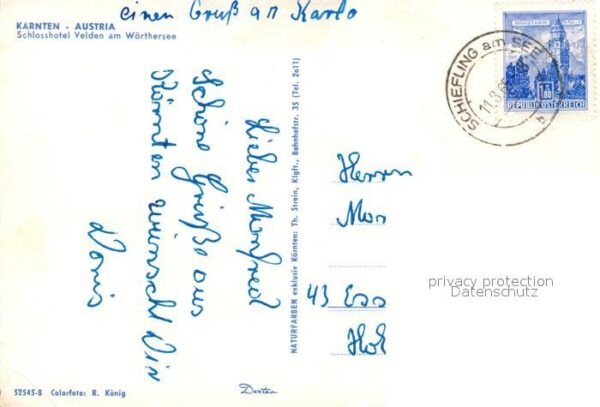 einen Gruß an Karlo
KÄRNTEN - AUSTRIA
Schlosshotel Velden am Wörthersee
Lieber Manfred
Schöne Grüße aus
Kärnten wünscht Dir
Doris
NATURFARBEN exklusiv Kärnten: Th. Strein, Klgft., Bahnhofstr. 35 (Tel. 2011)
SCHIEFLING am SEE
REPUBLIK ÖSTERREICH
1.80
Herrn
43 Ess
privacy protection
Datenschutz
52545-B Colorfoto: R. König